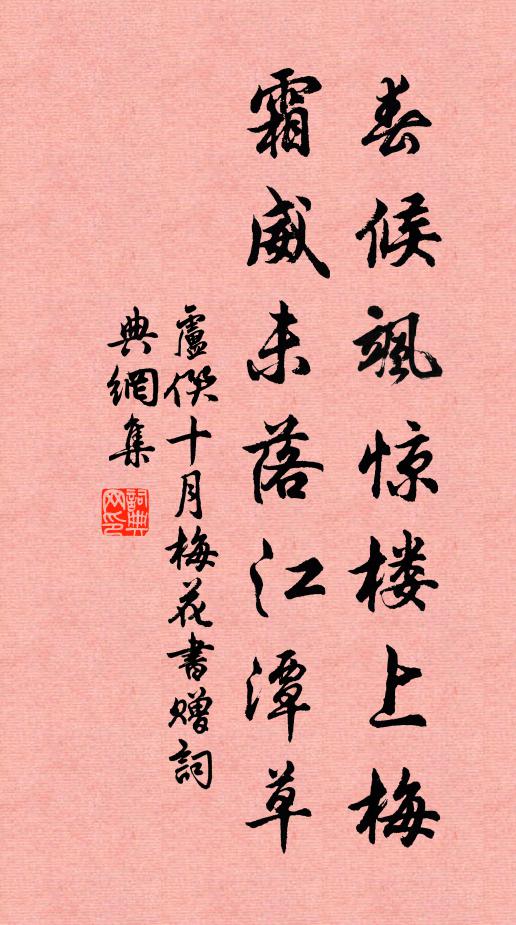 春候飒惊楼上梅
霜威未落江潭草
盧僎十月梅花書赠詞
典網集
詞典網印